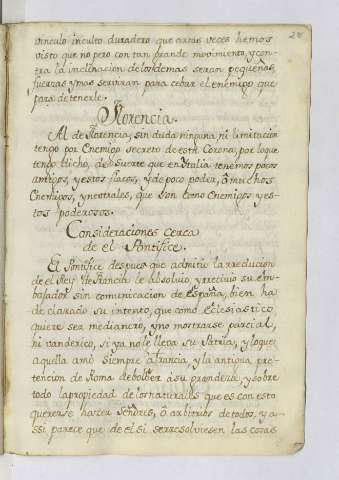 28
vinculo inculto duradero que arras veces hemos
visto que no pero con tan grande movimiento, y con
tra la inclinacion de los demas seran pequeñas,
fuerzas y mas serviran para cebar el enemigo que
para detenerle.
Florencia.
Al de Florencia, sin duda ninguna ni limitacion
tengo por Enemigo secreto de esta Corona, por loque
tengo dicho, de suerte que en Ytalia tenemos pocos
amigos, y estos flacos, y de poco poder, ô muchos
Enemigos, y neutrales, que son como Enemigos y es-
tos poderosos.
Consideraciones cerca
de el Pontifice.
El Pontifice despues que admitio la rreducion
de el Rey de Francia le absoluio, y rrecivio su em-
bajador sin comunicacion de España, bien ha
declarado su intento, que como eclesiastico
quiere sea medianero, y no mostrarse parcial,
ni vanderico, si ya no le lleva su Patria, y loque
aquella amò siempre a Francia, y la antigua pre-
tencion de Roma de bolber à su grandeza, y sobre
todo la propiedad de los naturales que es con esto
quererse hazer señores, ô arbitros de todos, y a-
ssi parece que de el si se rresolviesen las cosas